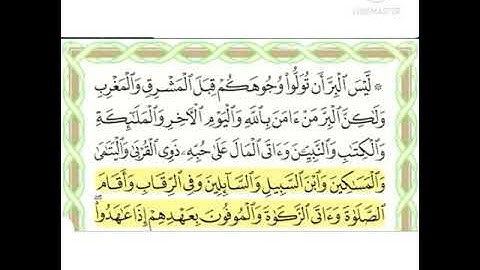 VIDEMASTER
۞ لَّيْسَ ٱلْبِرَّ أَن تُوَلُّوا۟ وُجُوهَكُمْ قِبَلَ ٱلْمَشْرِقِ وَٱلْمَغْرِبِ
وَلَٰكِنَّ ٱلْبِرَّ مَنْ ءَامَنَ بِٱللَّهِ وَٱلْيَوْمِ ٱلْءَاخِرِ وَٱلْمَلَٰٓئِكَةِ
وَٱلْكِتَٰبِ وَٱلنَّبِيِّـۧنَ وَءَاتَى ٱلْمَالَ عَلَىٰ حُبِّهِۦ ذَوِى ٱلْقُرْبَىٰ وَٱلْيَتَٰمَىٰ
وَٱلْمَسَٰكِينَ وَٱبْنَ ٱلسَّبِيلِ وَٱلسَّآئِلِينَ وَفِى ٱلرِّقَابِ وَأَقَامَ
ٱلصَّلَوٰةَ وَءَاتَى ٱلزَّكَوٰةَ وَٱلْمُوفُونَ بِعَهْدِهِمْ إِذَا عَٰهَدُوا۟ ۖ